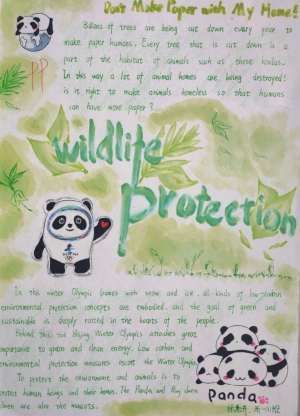 Don't Make Paper with My Home!
Billions of trees are being cut down every year to
make paper humans. Every tree that is cut down is a
part of the habitat of animals such as these koalas.
In this way a lot of animal homes are being destroyed!
is it right to make animals homeless so that humans
can have more paper?
PP
wildlife
protection
In this winter Olympic Games with snow and ice, all kinds of low-carbon
environmental protection concepts are embodied, and the goal of green
and sustainable is deeply rooted in the hearts of the people.
Behind this, the Beijing Winter Olympics attaches great
importance to green and clean energy. Low carbon and
environmental protection measures escort the Winter Olympics
To protect the environment and animals is to
protect human beings and their homes. The Panda and
are also the mascots.
panda